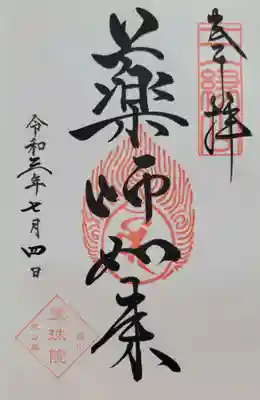 奉拝
薬師如来
令和三年七月四日
宝珠院